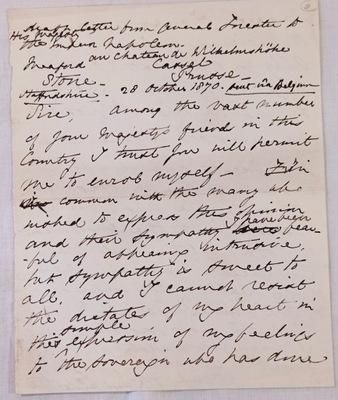 draft letter from General Forester to
His Majesty
the Emperor Napoleon.
Meaford au Chateau de Wilhelmshöhe
Stone - Cassel
Prusse -
Staffordshire - 28 October 1870. sent via Belgium
Sire, Among the vast number
of your Majestys friends in this
Country I trust you will permit
me to enrol myself -
common with the many who
wished to express this opinion
and their sympathy I have been fear-
-ful of appearing intrusive,
but sympathy is sweet to
all, and I cannot resist
the dictates of my heart in
simple
this expression of my feelings
to the Sovereign who has done